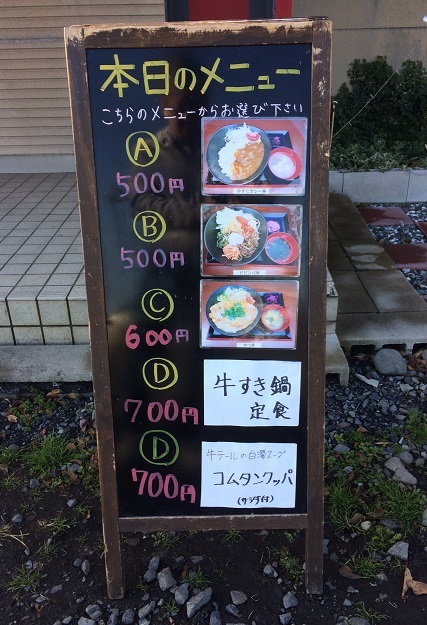 本日のメニュー
こちらのメニューからお選び下さい
A
500円
B
500円
ビビンバ丼
C
600円
カツ丼
D
700円
牛すき鍋
定食
D
700円
牛テールの白濁スープ
コムタンクッパ